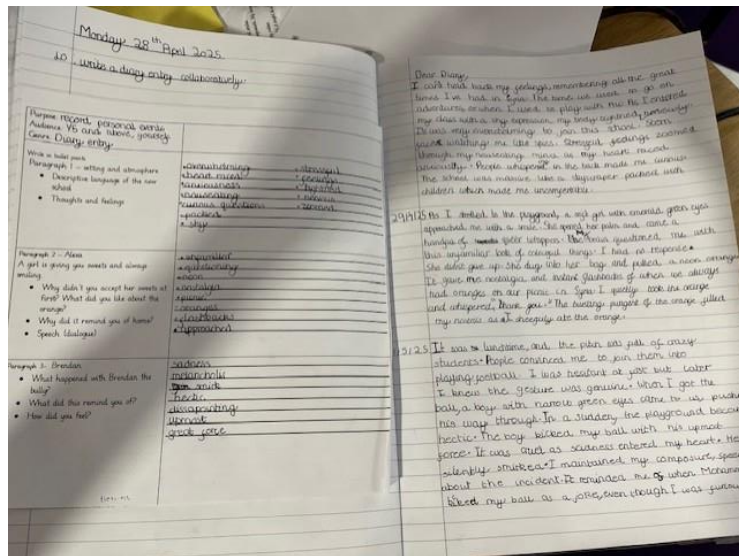 Monday 28th April 2025
LO: write a diary entry collaboratively.
Purpose: record personal events
Audience: Y6 and above, yourself
Genre: Diary entry
Write in bullet points
Paragraph 1 - setting and atmosphere
Descriptive language of the new school
Thoughts and feelings
overwhelming
heart raced
anxiousness
nauseating
curious questions
packed
shy
stressful
feelings
nervous
Paragraph 2 - Alexa
A girl is giving you sweets and always smiling.
Why didn't you accept her sweets at first? What did you like about the orange?
Why did it remind you of home?
Speech (dialogue)
unfamiliar
questioning
neon
nostalgia
oranges
flashbacks
approached
Paragraph 3- Brendan
What happened with Brendan the bully?
What did this remind you of?
How did you feel?
sadness
melancholy
smirk
hectic
dissapointing
upmost
great force
Dear Diary,
I can't hold back my feelings, remembering all the great
times I've had in Syria. The times we used to go on
adventures or when I used to play with the As I entered
my class with a shy expression, my body tightened,
It was very overwhelming to join this school. Seem
watching me like spies. Stressful feelings zoomed
through my nauseating mind as my heart raced
anxiously. People whispered in the back made me curious
The school was massive like a skyscraper packed with
children which made me uncomfortable.
29/4/25 As I strolled to the playground, a girl with emerald, green eyes
approached me with a smile. She opened her palm and came a
handful of wrappers. questioned me with
this unfamiliar of coloured things. I had no response.
She didnt give up. She dug into her bag and pulled a neon orange
It gave me nostalgia and instant flashbacks of when we always
had oranges on our picnic in Syria. I quickly took the orange
and whispered, "thank you." The of the orange filled
my as I cheerfully ate the orange.
It was lunchtime, and the pitch was full of crazy
students. People convinced me to join them into
playing football. I was hesitant at first but later
I knew the gesture was genuine. When I got the
ball, a boy with narrow green eyes came to us
his way through. In a sudden, the playground
hectic. The boy kicked my ball with his upmost
force. It was cruel as sadness entered my heart. He
silently smirked. I maintained my composure,
about the incident. It reminded me of when
kicked my ball as a joke, even though I was